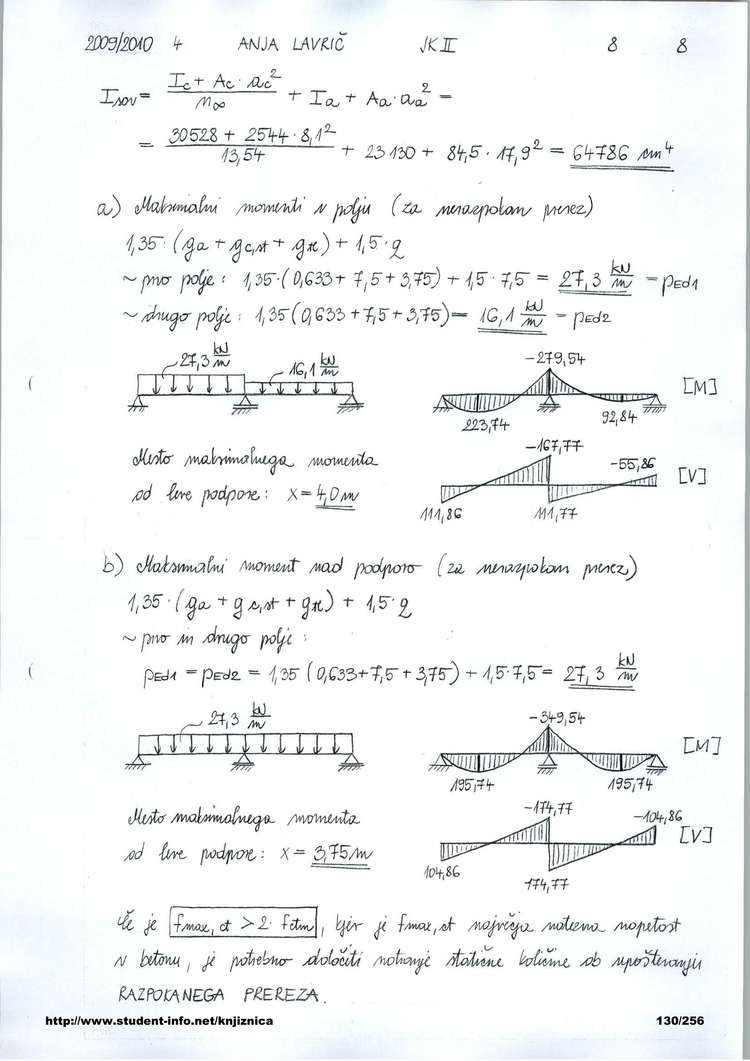 2009/2010 4 ANJA LAVRIČ JK II 8 8
Isov = (Ic + Ac · ac²)/n∞ + Ia + Aa · aa² =
= (30528 + 2544 · 8,1²)/13,54 + 23130 + 84,5 · 17,9² = 64786 cm⁴
a) Maksimalni momenti v polju (za nerazpokan prerez)
1,35 · (ga + gc,st + gst) + 1,5 · q
~ prvo polje : 1,35 · (0,633 + 7,5 + 3,75) + 1,5 · 7,5 = 27,3 kN/m = pEd1
~ drugo polje : 1,35 (0,633 + 7,5 + 3,75) = 16,1 kN/m = pEd2
27,3 kN/m 16,1 kN/m -279,54 [M]
223,74 92,84
Mesto maksimalnega momenta -167,77 -55,86 [V]
od leve podpore : x = 4,0 m
111,86 111,77
b) Maksimalni moment nad podporo (za nerazpokan prerez)
1,35 · (ga + gc,st + gst) + 1,5 · q
~ prvo in drugo polje :
pEd1 = pEd2 = 1,35 (0,633 + 7,5 + 3,75) + 1,5 · 7,5 = 27,3 kN/m
27,3 kN/m -349,54 [M]
195,74 195,74
Mesto maksimalnega momenta -174,77 -104,86 [V]
od leve podpore : x = 3,75 m
104,86 174,77
Če je fmax,ct > 2 · fctm, kjer je fmax,ct največja natezna napetost
v betonu, je potrebno določiti notranje statične količine ob upoštevanju
RAZPOKANEGA PREREZA.
http://www.student-info.net/knjiznica 130/256